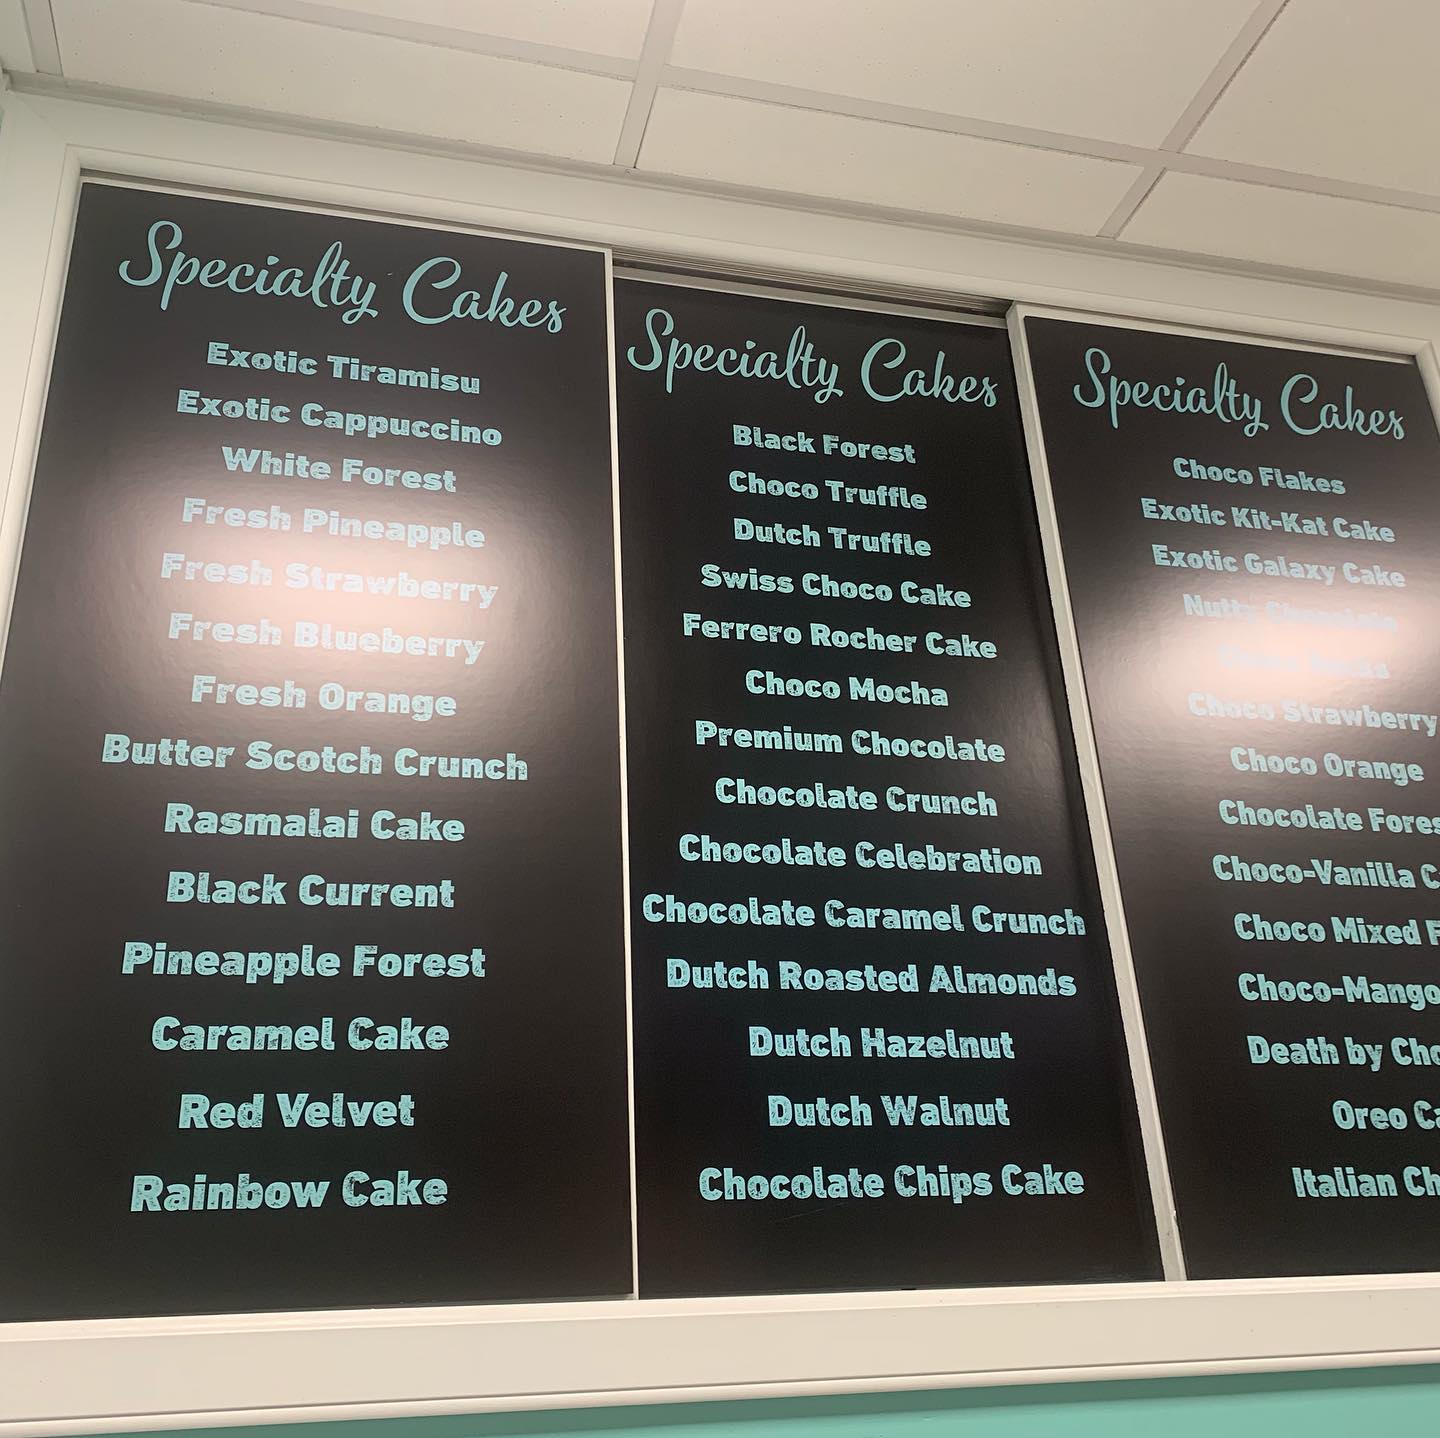 Specialty Cakes
Exotic Tiramisu
Exotic Cappuccino
White Forest
Fresh Pineapple
Fresh Strawberry
Fresh Blueberry
Fresh Orange
Butter Scotch Crunch
Rasmalai Cake
Black Current
Pineapple Forest
Caramel Cake
Red Velvet
Rainbow Cake
Specialty Cakes
Black Forest
Choco Truffle
Dutch Truffle
Swiss Choco Cake
Ferrero Rocher Cake
Choco Mocha
Premium Chocolate
Chocolate Crunch
Chocolate Celebration
Chocolate Caramel Crunch
Dutch Roasted Almonds
Dutch Hazelnut
Dutch Walnut
Chocolate Chips Cake
Specialty Cakes
Choco Flakes
Exotic Kit-Kat Cake
Exotic Galaxy Cake
Nutty Chocolate
Choco
Choco Strawberry
Choco Orange
Chocolate
Choco-Vanilla
Choco Mixed
Choco-Mango
Death by
Oreo
Italian